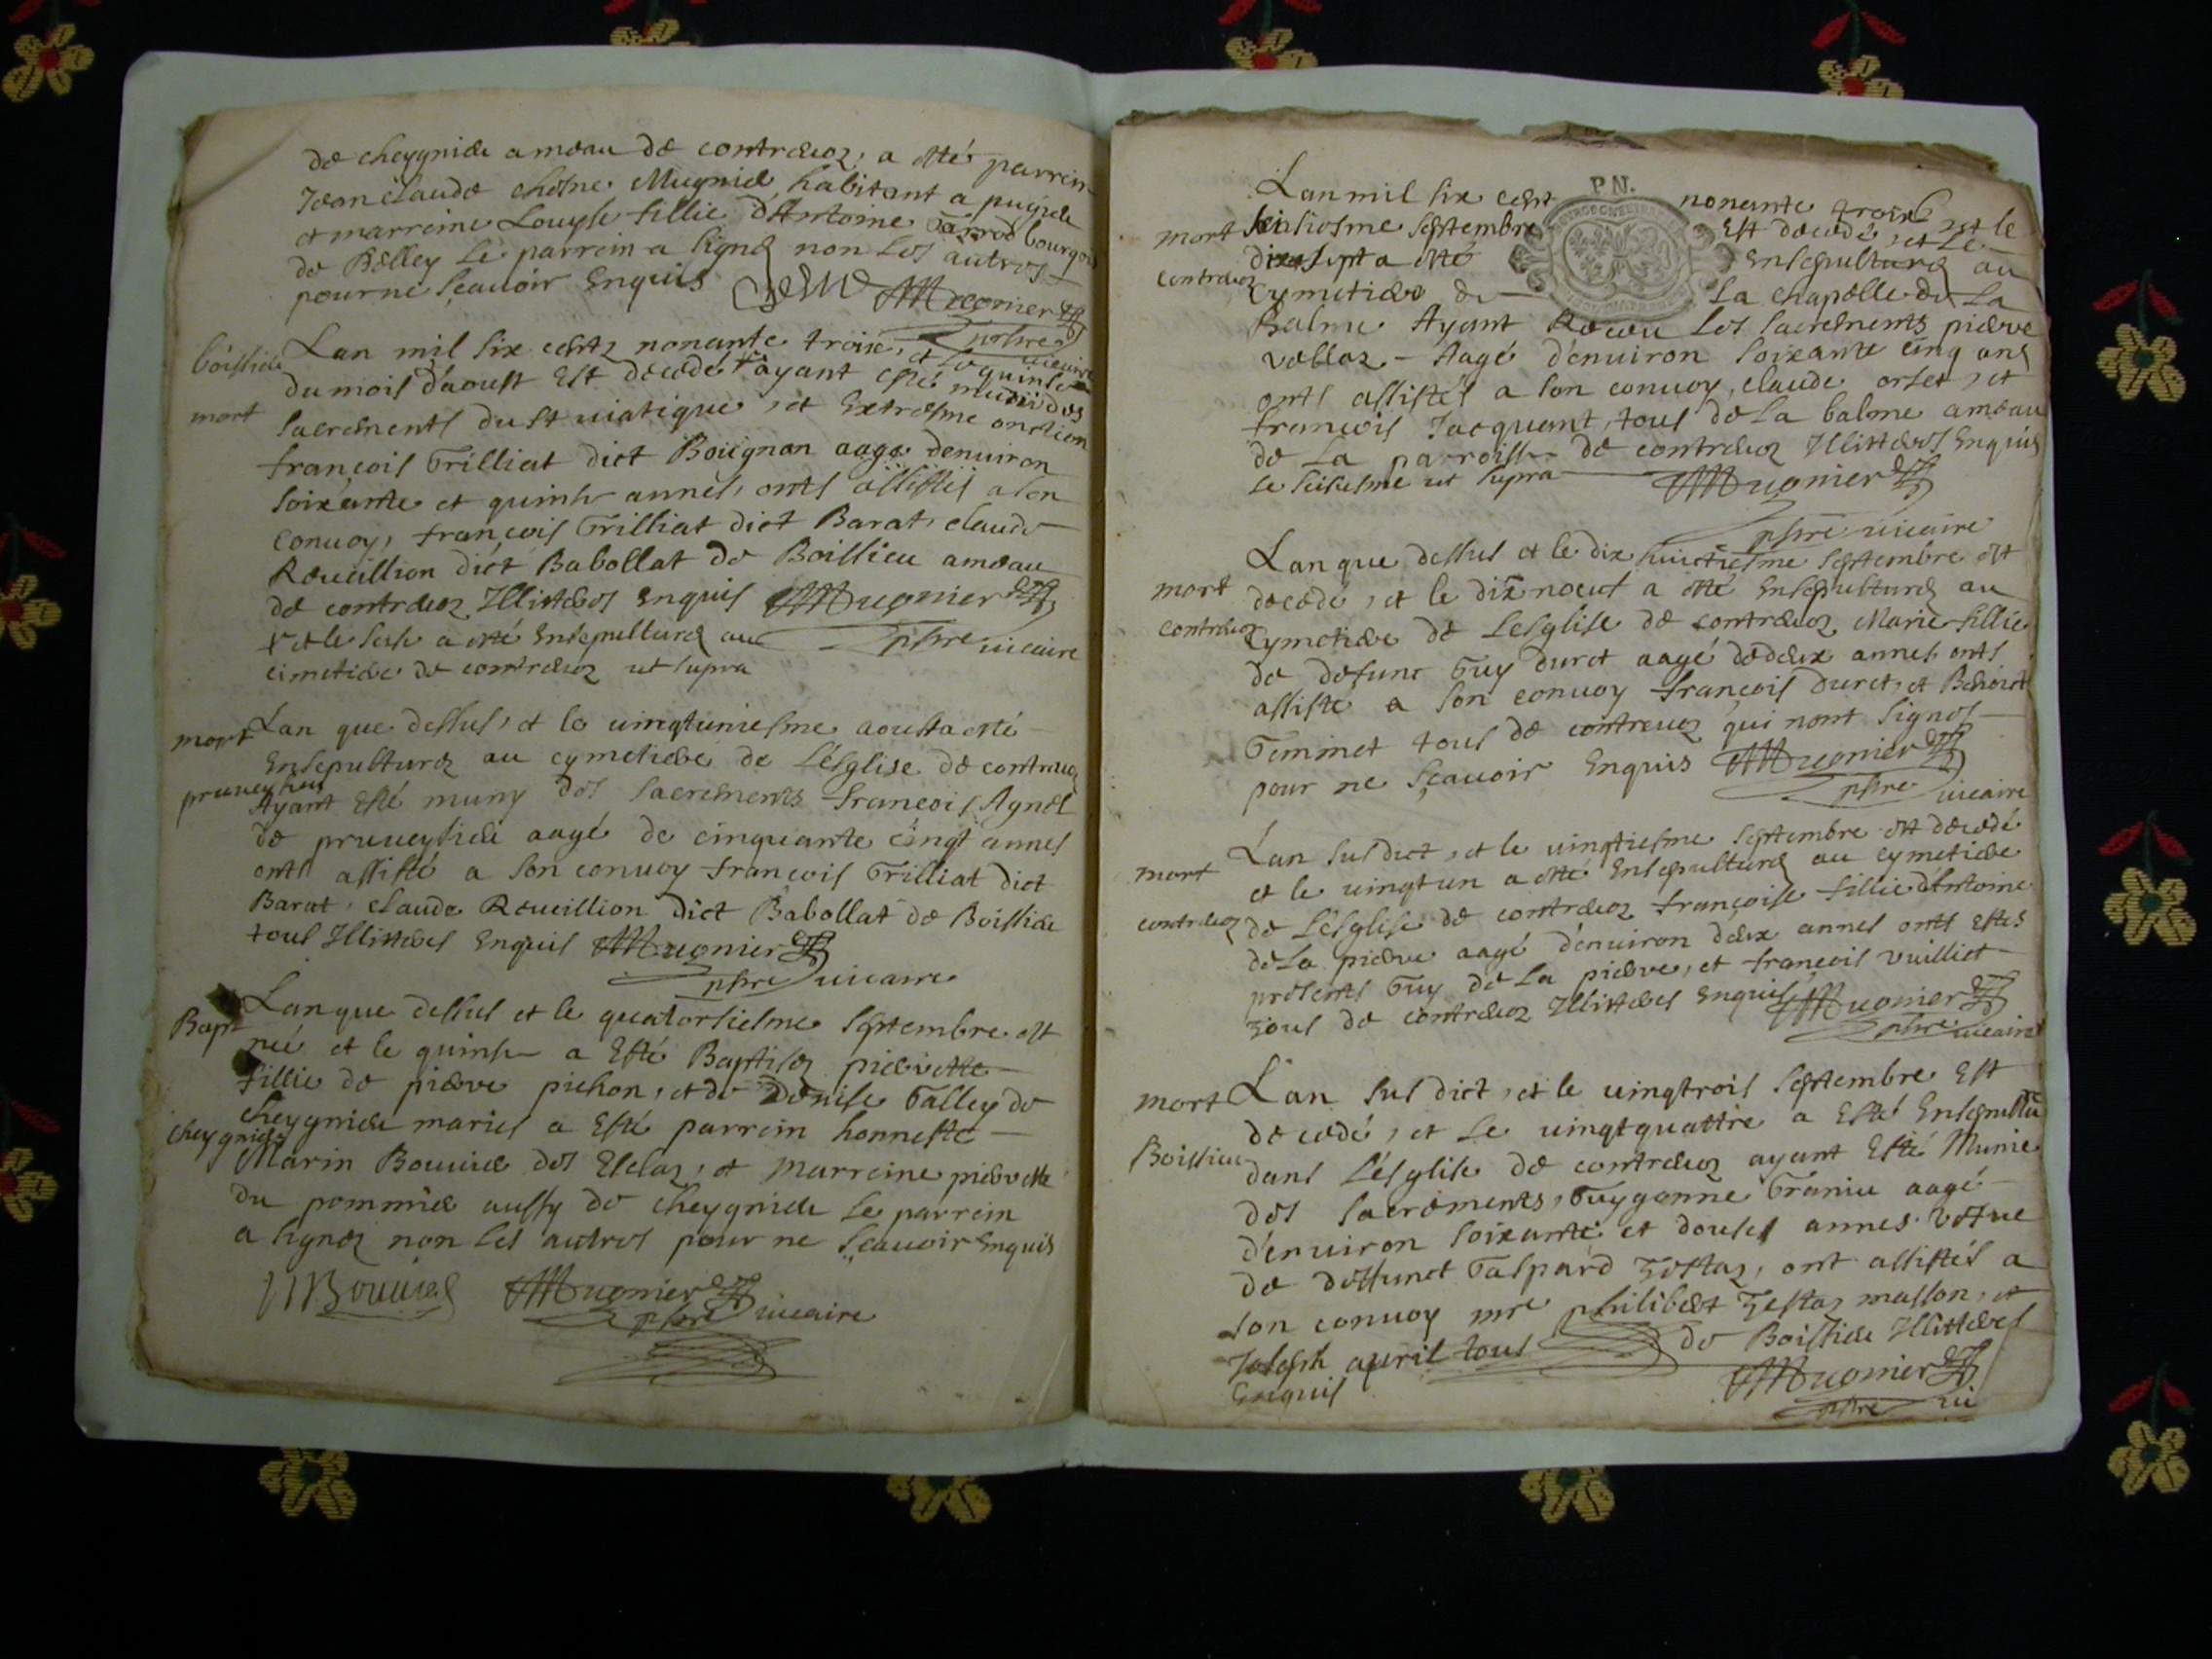 de cheygnieu ameau de contrevoz, a esté parrein
Jean claude chesne Mugnier habitant a pugieu
et marreine Louyse fillie d'Antoine Jarrod bourgois
de Belley le parrein a signé non les autres
pour ne sçauoir Enquis MMugnier
pbre uicaire
boissieu
mort
Lan mil six cents nonante trois, et le quinse
du mois d'aoust Est decedé + ayant esté muni des
sacrements du st uiatique, et Extresme onction
françois Trilliat dict Boiignan aagé denuiron
soixante et quinse annés, onts assistés a son
conuoy, françois Trilliat dict Barat, claude
Reueillion dict Babollat de Boissieu ameau
de contrevoz Illitterés Enquis MMugnier
+ et le sese a esté Ensepulturé au pbre uicaire
cimetiere de contrevoz ut supra
mort
Lan que dessus, et le uingtuniesme aoust a esté
Ensepulturé au cymetiere de L'ésglise de contrevoz
Ayant Esté muny des sacrements françois Agnel
de prueuysieu aagé de cinquante cingt annés
onts assisté a son conuoy françois Trilliat dict
Barat, claude Reueillion dict Babollat de Boissieu
tous Illitterés Enquis MMugnier
pbre uicaire
Bapt
cheygnieu
Lan que dessus et le quatorsiesme septembre est
néé et le quinse a Esté Baptisée pierrette
fillie de pierre pichon, et de Denise Talley de
cheygnieu mariés a Esté parrein honneste
Marin Bouuier des Esclaz, et marreine pierrette
du pommier aussy de cheygnieu le parrein
a signéz non les autres pour ne sçauoir Enquis
MBouuier MMugnier
pbre uicaire
P N.
mort
contrevoz
Lan mil six cent nonante trois et le
seisiesme septembre Est decedé, et Le
dixsept a esté Ensepulturé au
cymetiere de La chapelle de La
Balme Ayant Receu les sacrements pierre
vellaz - Aagé d'enuiron soixante cinq ans
onts assistés a son conuoy, claude orset, et
françois Jacquant, tous de la balme ameau
de La parroisse de contrevoz Illitterés Enquis
le seisiesme ut supra MMugnier
pbre uicaire
mort
contrevoz
Lan que dessus et le dix huictiesme septembre est
decedé, et le dix noeuf a esté Ensepulturé au
cymetiere de Lésglise de contrevoz Marie fillie
de defunc Guy duret aagé de deux annés onts
assisté a son conuoy françois Duret, et Benoict
Geminet tous de contrevoz qui n'ont signés
pour ne sçauoir Enquis MMugnier
pbre uicaire
mort
contrevoz
L'an susdict, et le uingtiesme septembre est decedé
et le uingtun a esté Ensepulturé au cymetiere
de L'ésglise de contrevoz françoise fillie d'Antoine
de La pierre aagé d'enuiron deux annés onts Estés
présents Guy de La pierre, et françois vuilliet
tous de contrevoz Illitterés Enquis MMugnier
pbre uicaire
mort
Boissieu
L'an susdict, et le uingtrois septembre Est
decedé, et Le uingtquattre a Esté Ensepultu
dans L'ésglise de contrevoz ayant Esté Munie
des sacrements, Guygonne Graniu aagé
d'enuiron soixante et douse annés vefue
de deffunct Gaspard Testaz, ont assistés a
son conuoy mre philibert Testaz masson, et
Joseph apuril tous de Boissieu Illitterés
Enquis MMugnier
pbre ui